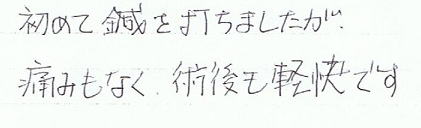 初めて鍼を打ちましたが、
痛みもなく、術後も軽快です